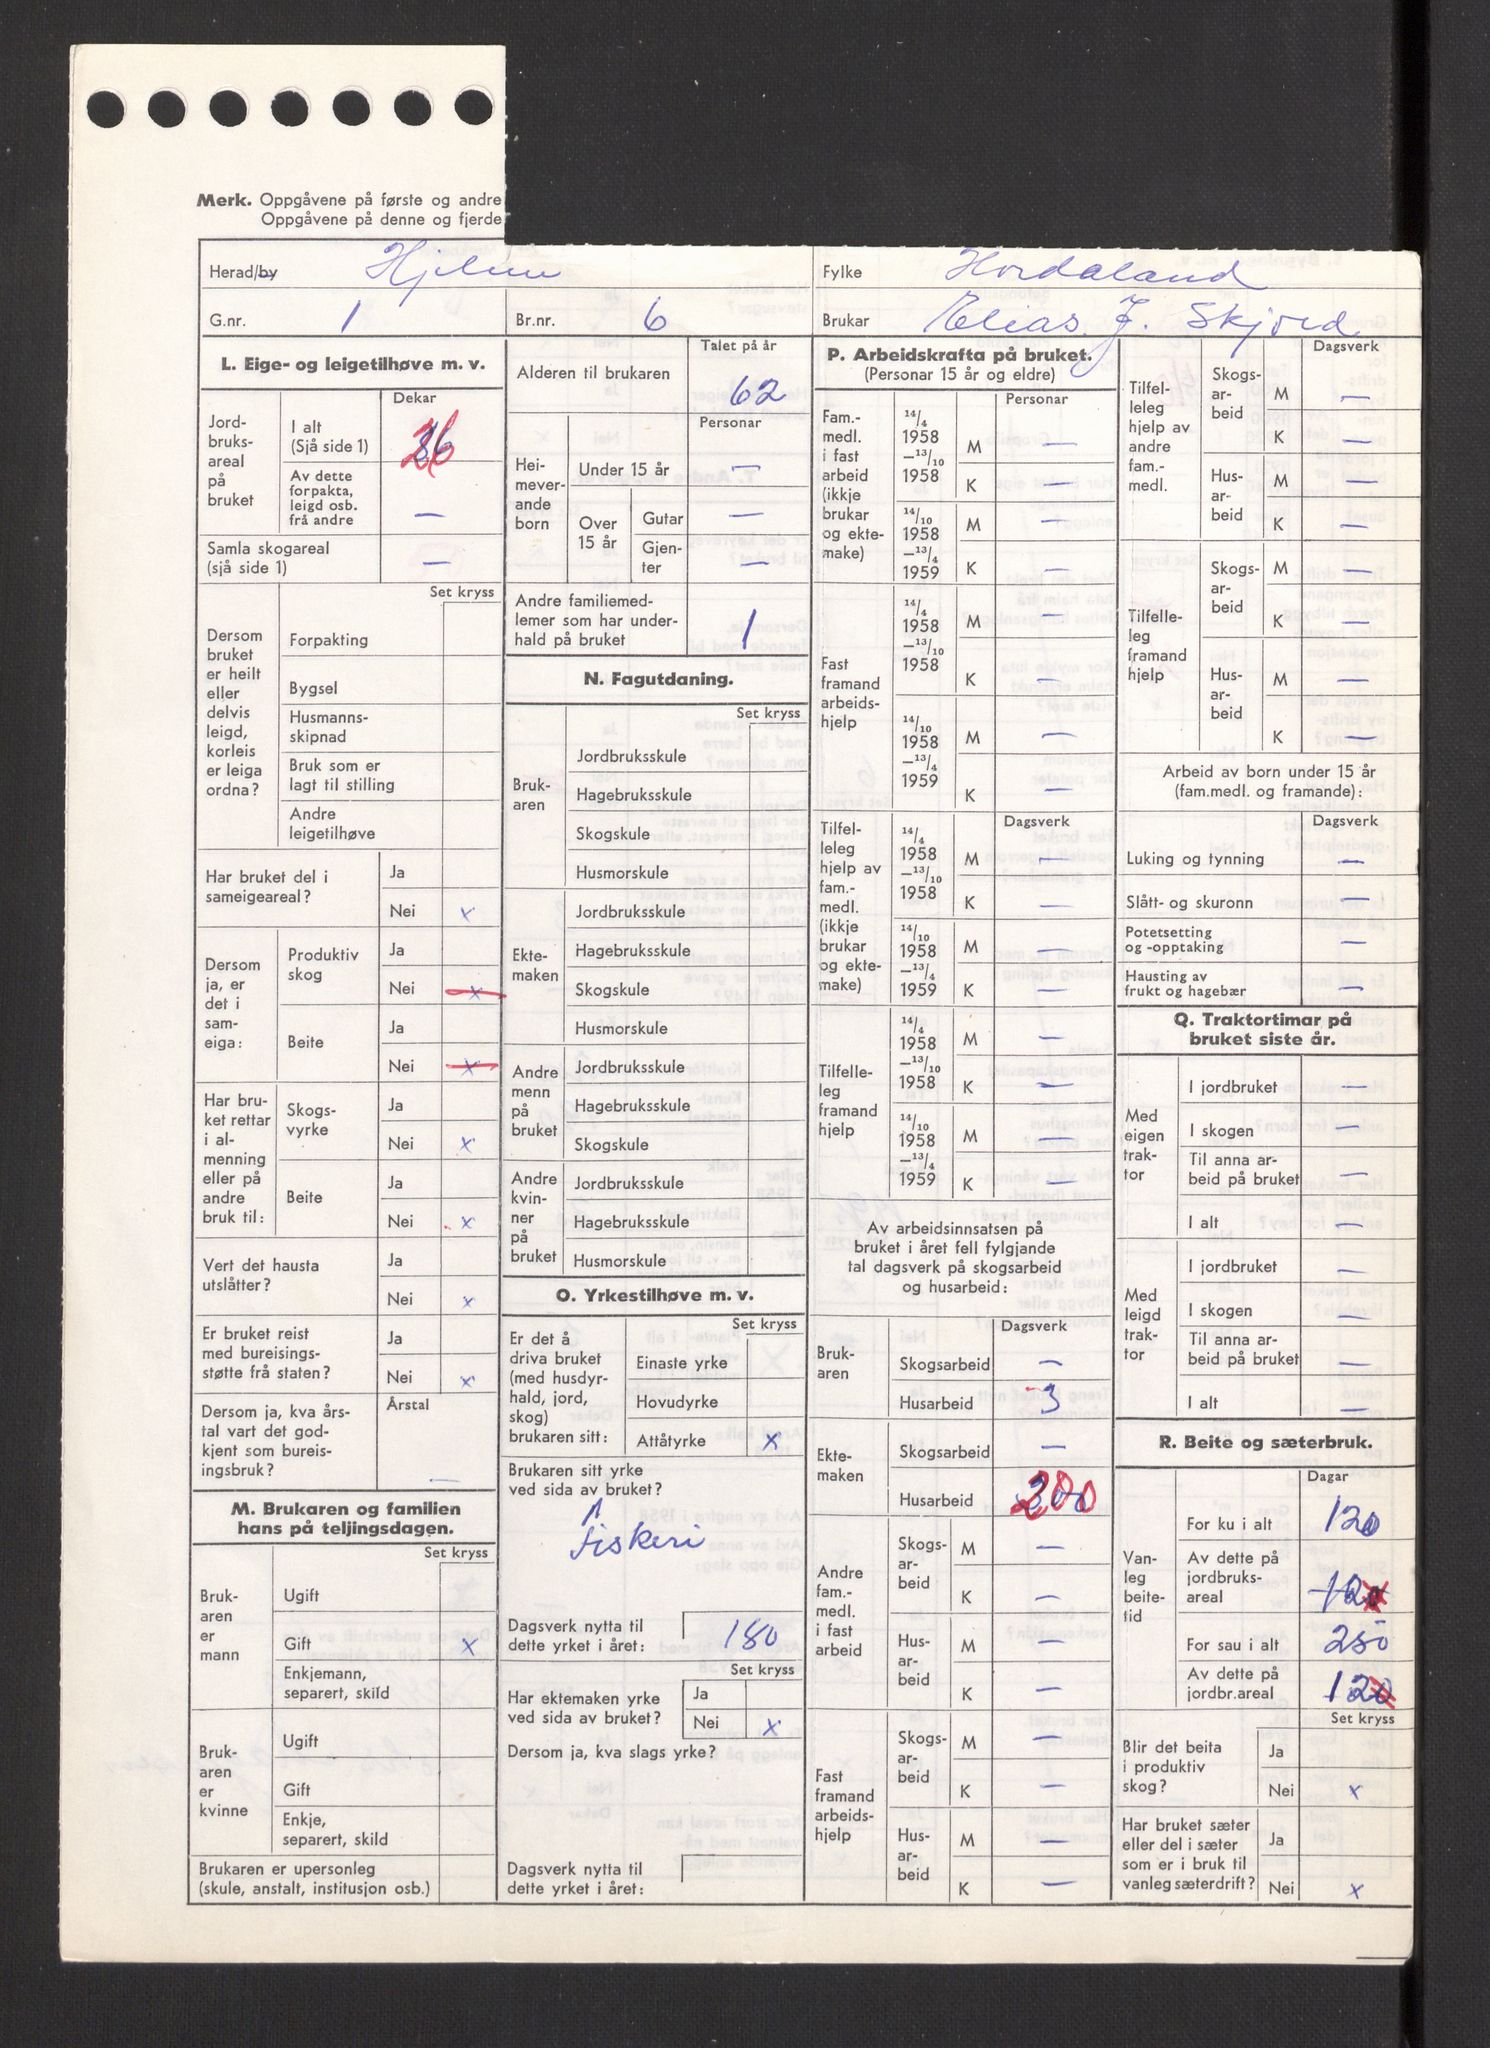 Merk. Oppgåvene på første og andre
Oppgåvene på denne og fjerde
Herad/by Hjelme
Fylke Hordaland
G.nr. 1
Br.nr. 6
Brukar Elias J. Skjold
L. Eige- og leigetilhøve m. v.
Dekar
Jord-
bruks-
areal
på
bruket
I alt
(Sjå side 1)
26
Av dette
forpakta,
leigd osb.
frå andre
—
Samla skogareal
(sjå side 1)
—
Set kryss
Dersom
bruket
er heilt
eller
delvis
leigd,
korleis
er leiga
ordna?
Forpakting
Bygsel
Husmanns-
skipnad
Bruk som er
lagt til stilling
Andre
leigetilhøve
Har bruket del i
sameigeareal?
Ja
Nei x
Dersom
ja, er
det i
sam-
eiga:
Produktiv
skog
Ja
Nei x
Beite
Ja
Nei x
Har bru-
ket rettar
i al-
menning
eller på
andre
bruk til:
Skogs-
vyrke
Ja
Nei x
Beite
Ja
Nei x
Vert det hausta
utslåtter?
Ja
Nei x
Er bruket reist
med bureisings-
støtte frå staten?
Ja
Nei x
Dersom ja, kva års-
tal vart det god-
kjent som bureis-
ingsbruk?
Årstal
—
M. Brukaren og familien
hans på teljingsdagen.
Set kryss
Bruk-
aren
er
mann
Ugift
Gift x
Enkjemann,
separert, skild
Bruk-
aren
er
kvinne
Ugift
Gift
Enkje,
separert, skild
Brukaren er upersonleg
(skule, anstalt, institusjon osb.)
Talet på år
Alderen til brukaren 62
Personar
Hei-
mever-
ande
born
Under 15 år —
Over
15 år
Gutar —
Gjen-
ter —
Andre familiemed-
lemer som har under-
hald på bruket 1
N. Fagutdaning.
Set kryss
Bruk-
aren
Jordbruksskule
Hagebruksskule
Skogskule
Husmorskule
Ekte-
maken
Jordbruksskule
Hagebruksskule
Skogskule
Husmorskule
Andre
menn
på
bruket
Jordbruksskule
Hagebruksskule
Skogskule
Andre
kvin-
ner
på
bruket
Jordbruksskule
Hagebruksskule
Husmorskule
O. Yrkestilhøve m. v.
Set kryss
Er det å
driva bruket
(med husdyr-
hald, jord,
skog)
brukaren sitt:
Einaste yrke
Hovudyrke
Attåtyrke x
Brukaren sitt yrke
ved sida av bruket?
fiskeri
Dagsverk nytta til
dette yrket i året: 180
Set kryss
Har ektemaken yrke
ved sida av bruket?
Ja
Nei x
Dersom ja, kva slags yrke?
Dagsverk nytta til
dette yrket i året:
P. Arbeidskrafta på bruket.
(Personar 15 år og eldre)
Personar
Fam.-
medl.
i fast
arbeid
(ikkje
brukar
og ekte-
make)
14/4
1958
—13/10
1958
M —
K —
14/10
1958
—13/4
1959
M —
K —
Fast
framand
arbeids-
hjelp
14/4
1958
—13/10
1958
M —
K —
14/10
1958
—13/4
1959
M —
K —
Dagsverk
Tilfel-
leleg
hjelp av
fam.-
medl.
(ikkje
brukar
og ekte-
make)
14/4
1958
—13/10
1958
M —
K —
14/10
1958
—13/4
1959
M —
K —
Tilfelle-
leg
framand
hjelp
14/4
1958
—13/10
1958
M —
K —
14/10
1958
—13/4
1959
M —
K —
Av arbeidsinnsatsen på
bruket i året fell fylgjande
tal dagsverk på skogsarbeid
og husarbeid:
Dagsverk
Bruk-
aren
Skogsarbeid —
Husarbeid 3
Ekte-
maken
Skogsarbeid —
Husarbeid 200
Andre
fam.-
medl.
i fast
arbeid
Skogs-
ar-
beid
M —
K —
Hus-
ar-
beid
M —
K —
Fast
framand
arbeids-
hjelp
Skogs-
ar-
beid
M —
K —
Hus-
ar-
beid
M —
K —
Dagsverk
Tilfel-
leleg
hjelp av
andre
fam.-
medl.
Skogs-
ar-
beid
M —
K —
Hus-
ar-
beid
M —
K —
Tilfelle-
leg
framand
hjelp
Skogs-
ar-
beid
M —
K —
Hus-
ar-
beid
M —
K —
Arbeid av born under 15 år
(fam.medl. og framande):
Dagsverk
Luking og tynning —
Slått- og skuronn —
Potetsetting
og -opptaking —
Hausting av
frukt og hagebær —
Q. Traktortimar på
bruket siste år.
Med
eigen
trak-
tor
I jordbruket —
I skogen —
Til anna ar-
beid på bruket —
I alt —
Med
leigd
trak-
tor
I jordbruket —
I skogen —
Til anna ar-
beid på bruket —
I alt —
R. Beite og sæterbruk.
Dagar
Van-
leg
beite-
tid
For ku i alt 120
Av dette på
jordbruks-
areal 120
For sau i alt 250
Av dette på
jordbr.areal 120
Set kryss
Blir det beita
i produktiv
skog?
Ja
Nei x
Har bruket sæter
eller del i sæter
som er i bruk til
vanleg sæterdrift?
Ja
Nei x